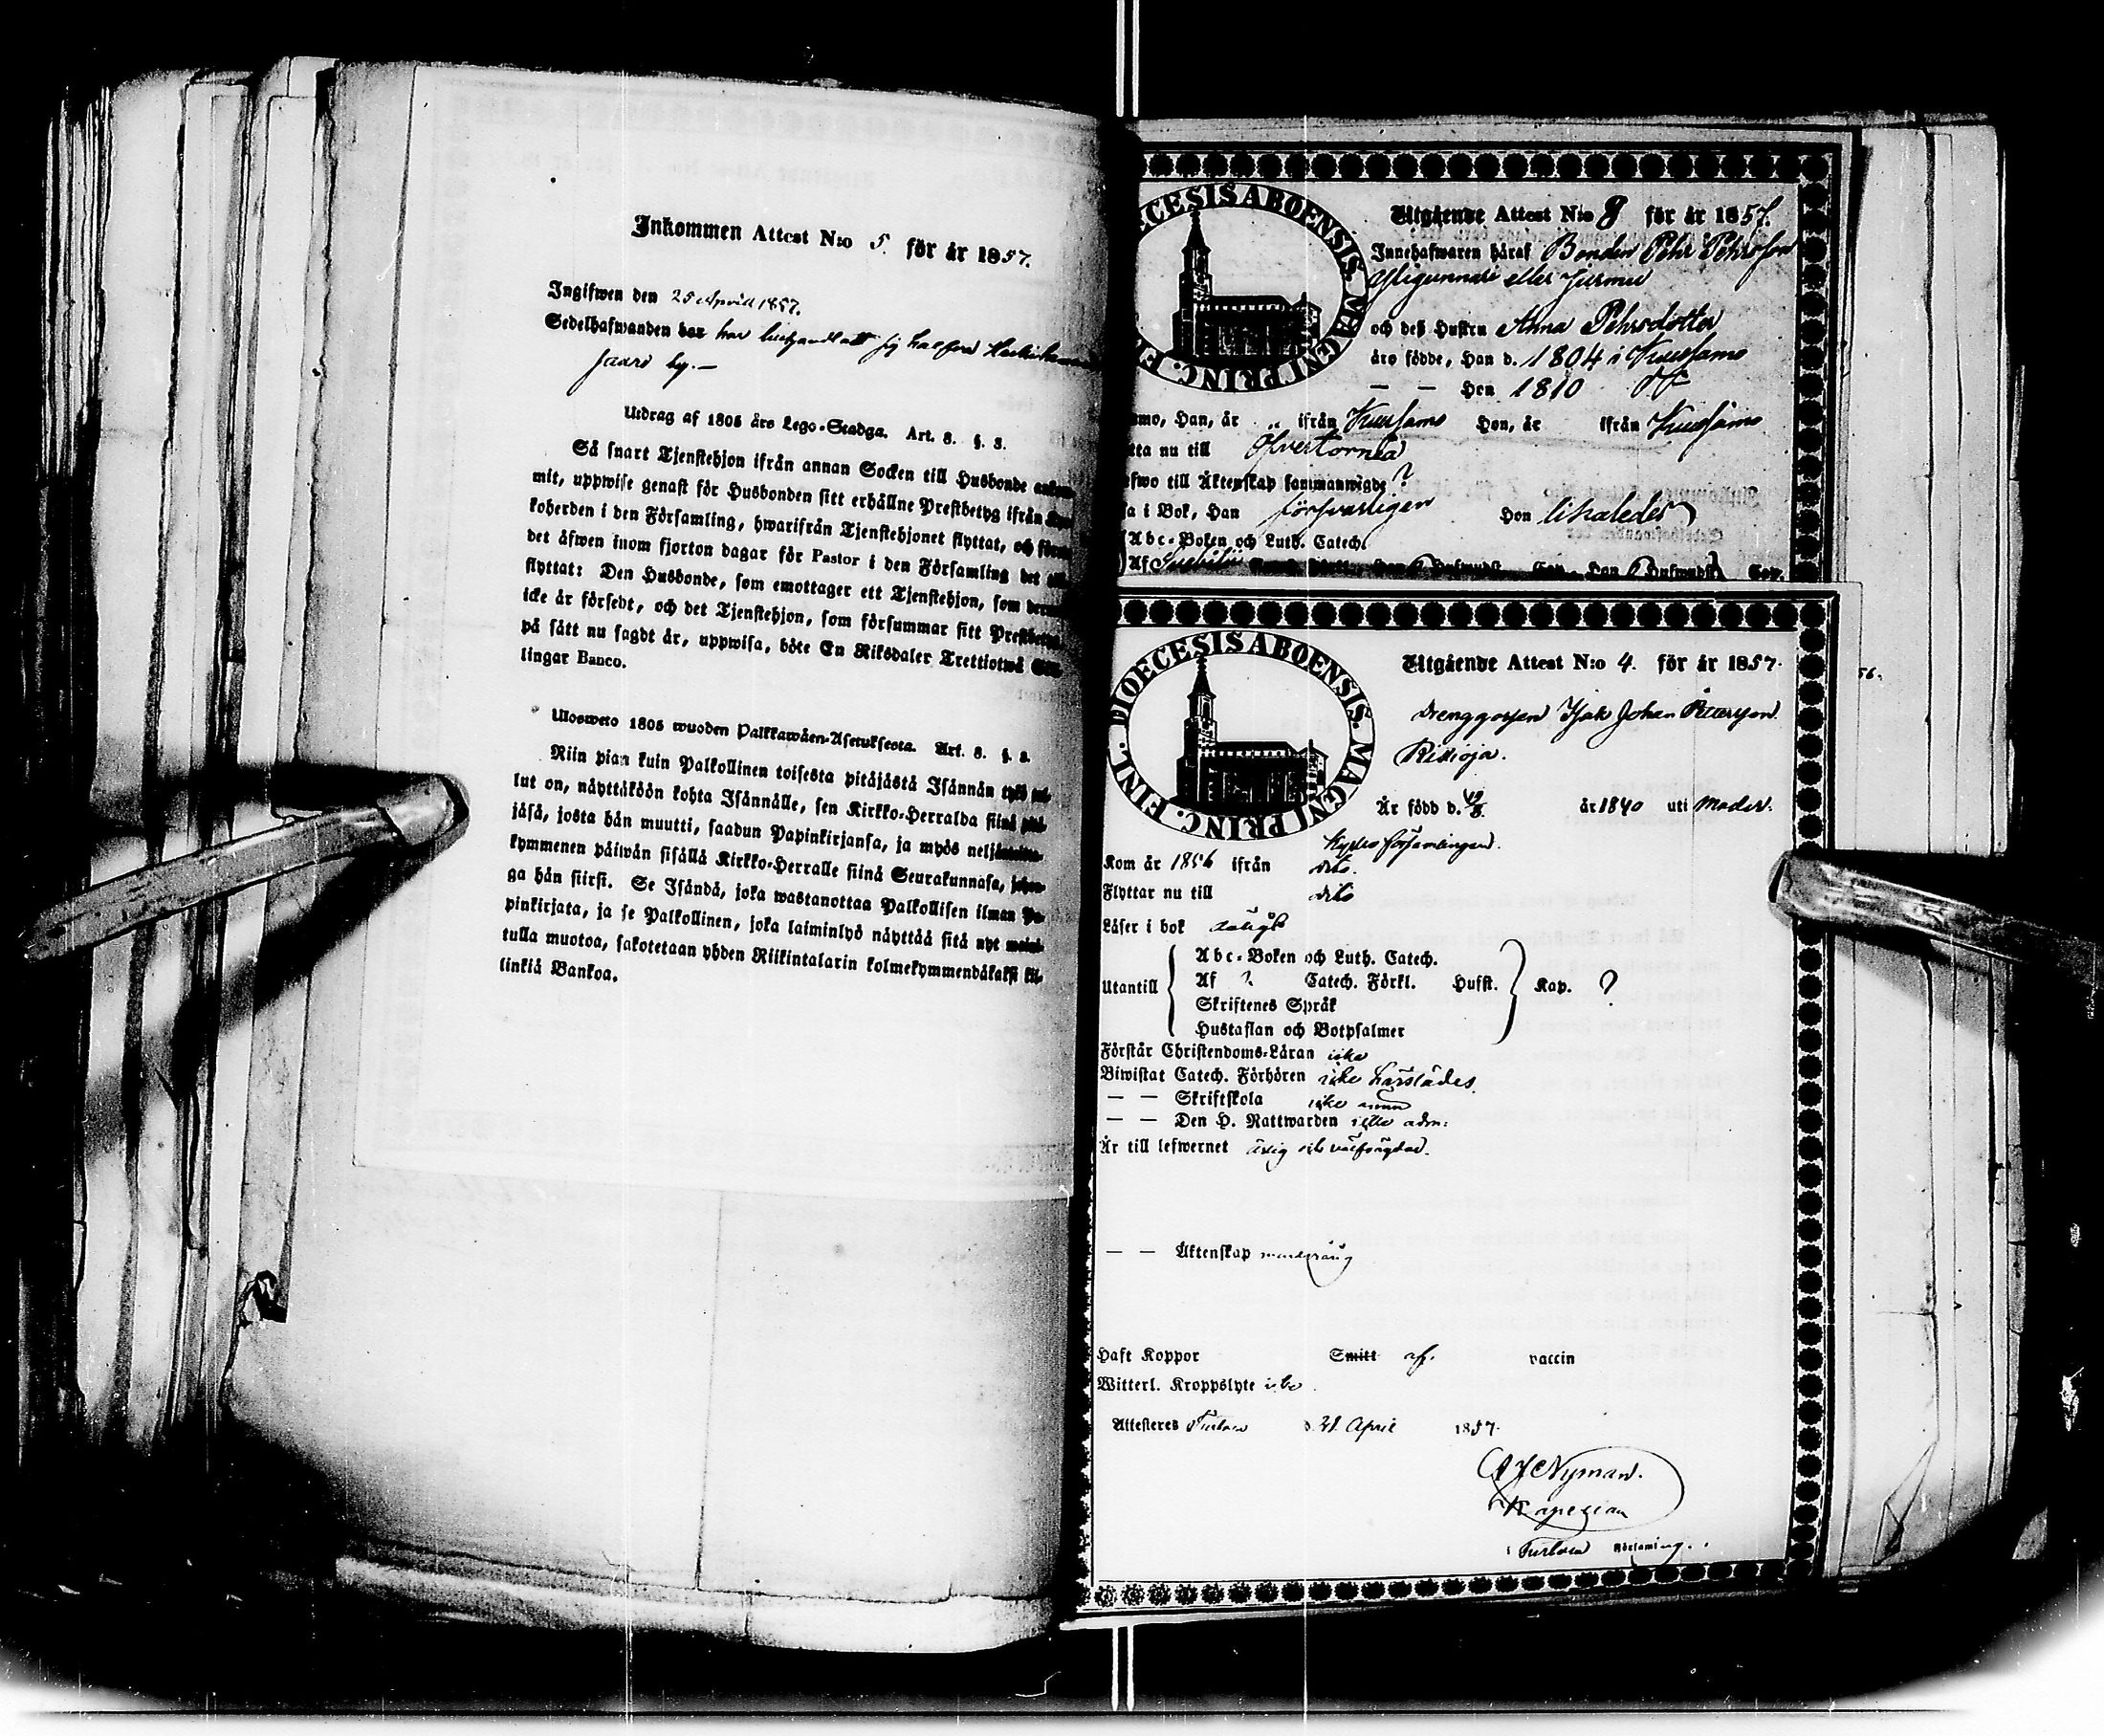 Inkommen Attest N:o 5. för år 1857.
Ingifwen den 25 April 1857.
Sedelhafwanden har har sig
by.—
Utdrag af 1805 års Lego-Stadga. Art. 8. §. 3.
Så snart Tjenstehjon ifrån annan Socken till Husbonde
mit, uppwise genast för Husbonden sitt erhållne Prestbetyg ifrån
koherden i den Församling, hwarifrån Tjenstehjonet flyttat, och
det äfwen inom fjorton dagar för Pastor i den Församling det
flyttat: Den Husbonde, som emottager ett Tjenstehjon, som
icke är försedt, och det Tjenstehjon, som försummar sitt
på sätt nu sagdt är, uppwisa, böte En Riksdaler Trettiotwå
lingar Banco.
Ulosweto 1805 wuoden Palkkawäen-Asetuksesta. Art. 8. §. 3.
Niin pian kuin Palkollinen toisesta pitäjästä Isännän tykö
lut on, näyttäköön kohta Isännälle, sen Kirkko-Herralda siinä
jäsä, josta hän muutti, saadun Papinkirjansa, ja myös
kymmenen päiwän sisällä Kirkko-Herralle siinä Seurakunnasa,
ga hän siirsi. Se Isändä, joka wastanottaa Palkollisen ilman
pinkirjata, ja se Palkollinen, joka laiminlyö näyttää sitä nyt
tulla muotoa, sakotetaan yhden Riikintalarin kolmekymmendäkaksi
linkiä Bankoa.
DIOECESIS ABOENSIS. MAGNI PRINC. FINL.
Utgående Attest N:o 8 för år 1857.
Innehafwaren häraf Bonden Pehr Pehrsson
eller
och deß Hustru Anna Pehrsdotter
äro födde, Han d. 1804 i Kuusamo
— — Hon 1810
Han, år „ ifrån Kuusamo Hon, år ifrån Kuusamo
nu till Öfvertorneå
till Äktenskap sammanwigde ?
i Bok, Han försvarligen Hon likaledes
Abc-Boken och Luth. Catech.
Af
DIOECESIS ABOENSIS. MAGNI PRINC. FINL.
Utgående Attest N:o 4. för år 1857.
56.
Drenggossen Isak Johan Pettersson
Ritioja.
Är född d. 19/8 år 1840 uti Moder.
kyrko församlingen.
Kom år 1856 ifrån dito.
Flyttar nu till dito
Läser i bok dåligt
Utantill
Abc-Boken och Luth. Catech.
Af ? Catech. Förkl. Husst. Kap. ?
Skriftenes Språk
Hustaflan och Botpsalmer
Förstår Christendoms-Läran icke
Biwistat Catech. Förhören icke härstädes
— — Skriftskola icke ännu
— — Den H. Nattwarden icke adm:
Är till lefwernet ärlig och välfrägdad.
— — Äktenskap
Haft Koppor Smitt vaccin
Witterl. Kroppslyte icke
Attesteres Turtola d. 21 April 1857.
Nyman.
Kapellan
Turtola Församling.